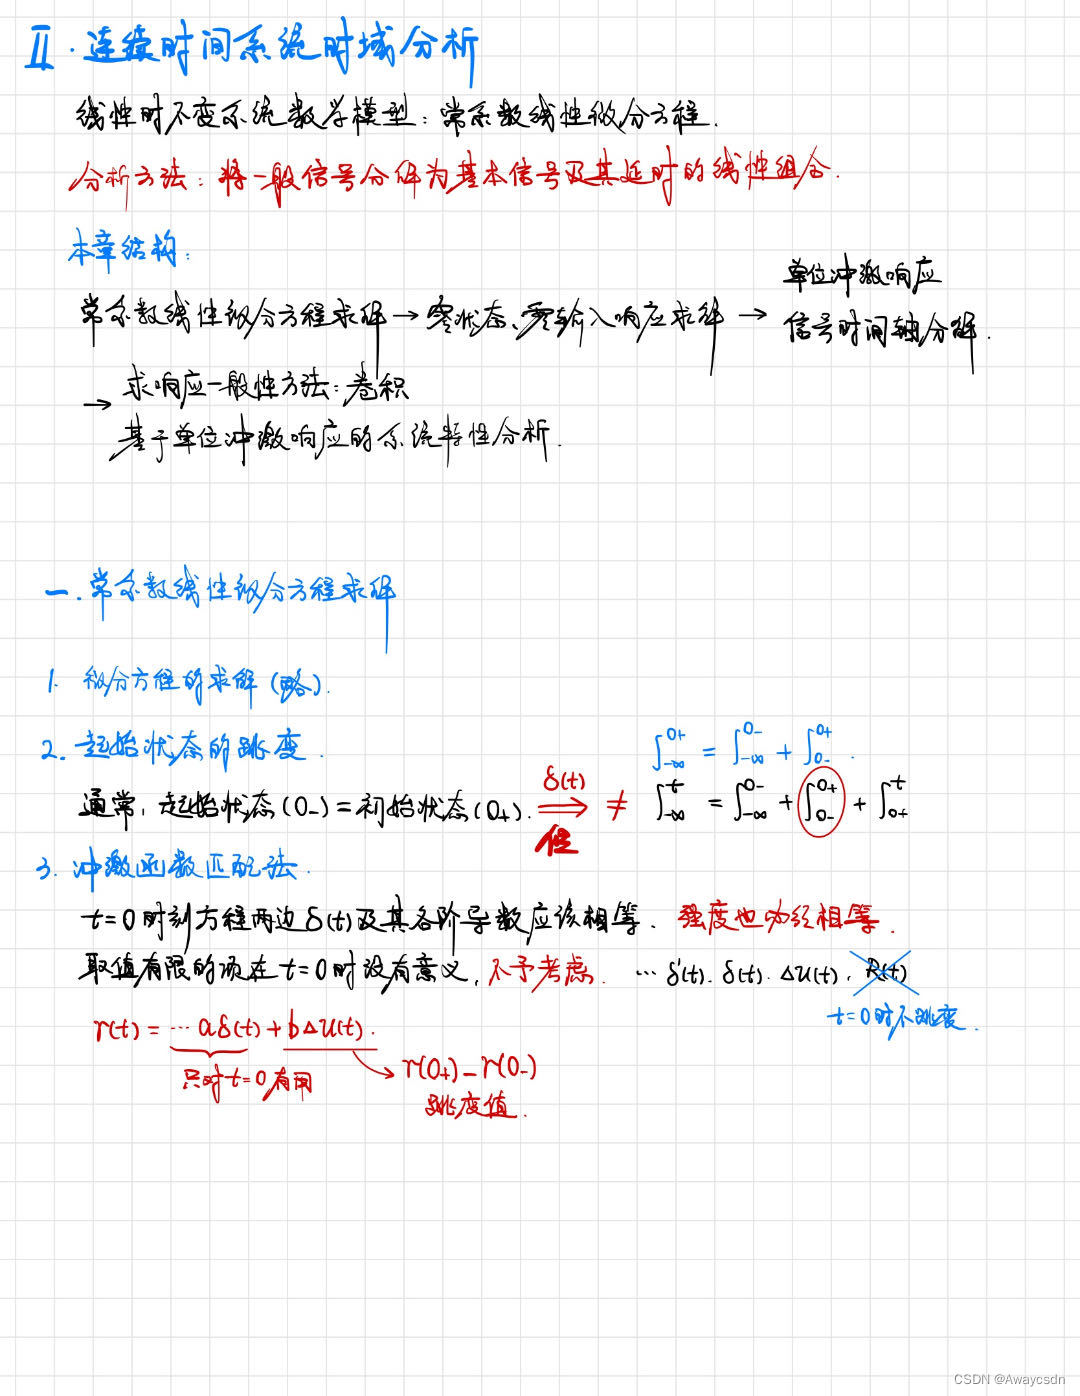 Ⅱ. 连续时间系统时域分析
线性时不变系统数学模型：常系数线性微分方程.
分析方法：将一般信号分解为基本信号及其延时的线性组合.
本章结构：
常系数线性微分方程求解→零状态、零输入响应求解→
单位冲激响应
信号时间轴分解.
→求响应一般性方法：卷积
基于单位冲激响应的系统特性分析.
一. 常系数线性微分方程求解
1. 微分方程的求解(略).
2. 起始状态的跳变.
∫_{-∞}^{0+} = ∫_{-∞}^{0-} + ∫_{0-}^{0+}.
通常，起始状态(0-)=初始状态(0+). δ(t) ⇒ 但 ≠ ∫_{-∞}^{t} = ∫_{-∞}^{0-} + ∫_{0-}^{0+} + ∫_{0+}^{t}
3. 冲激函数匹配法.
t=0时刻方程两边δ(t)及其各阶导数应该相等. 强度也必须相等.
取值有限的项在t=0时没有意义, 不予考虑. …δ'(t). δ(t). Δu(t), R(t)
t=0时不跳变.
r(t)=…aδ(t)+bΔu(t).
只对t=0有用
r(0+)-r(0-)
跳变值.
CSDN @Awaycsdn